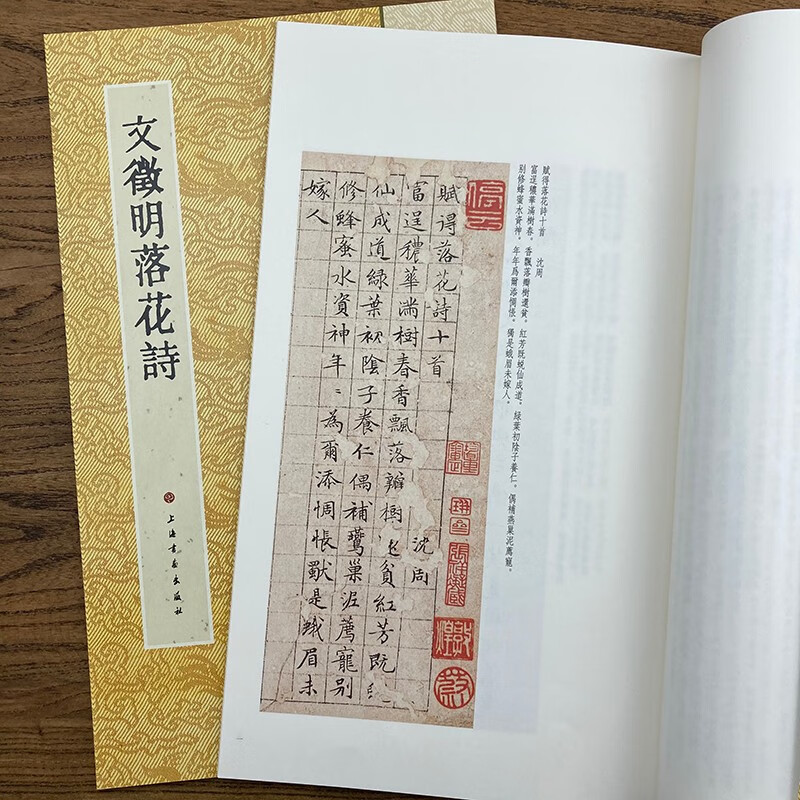 文徵明落花詩
上海書畫出版社
賦得落花詩十首　沈周
富逞穠華滿樹春。香飄落瓣樹還貧。紅芳既蛻仙成道。綠葉初陰子養仁。偶補燕巢泥薦寵。
別修蜂蜜水資神。年年爲爾添惆悵。獨是蛾眉未嫁人。
停云
賦得落花詩十首　沈周
富逞穠華滿樹春香飄落瓣樹貧紅芳既
仙成道綠葉初陰子養仁偶補鷰巢泥薦寵別
修蜂蜜水資神年〻為爾添惆悵獸是蛾眉未
嫁人